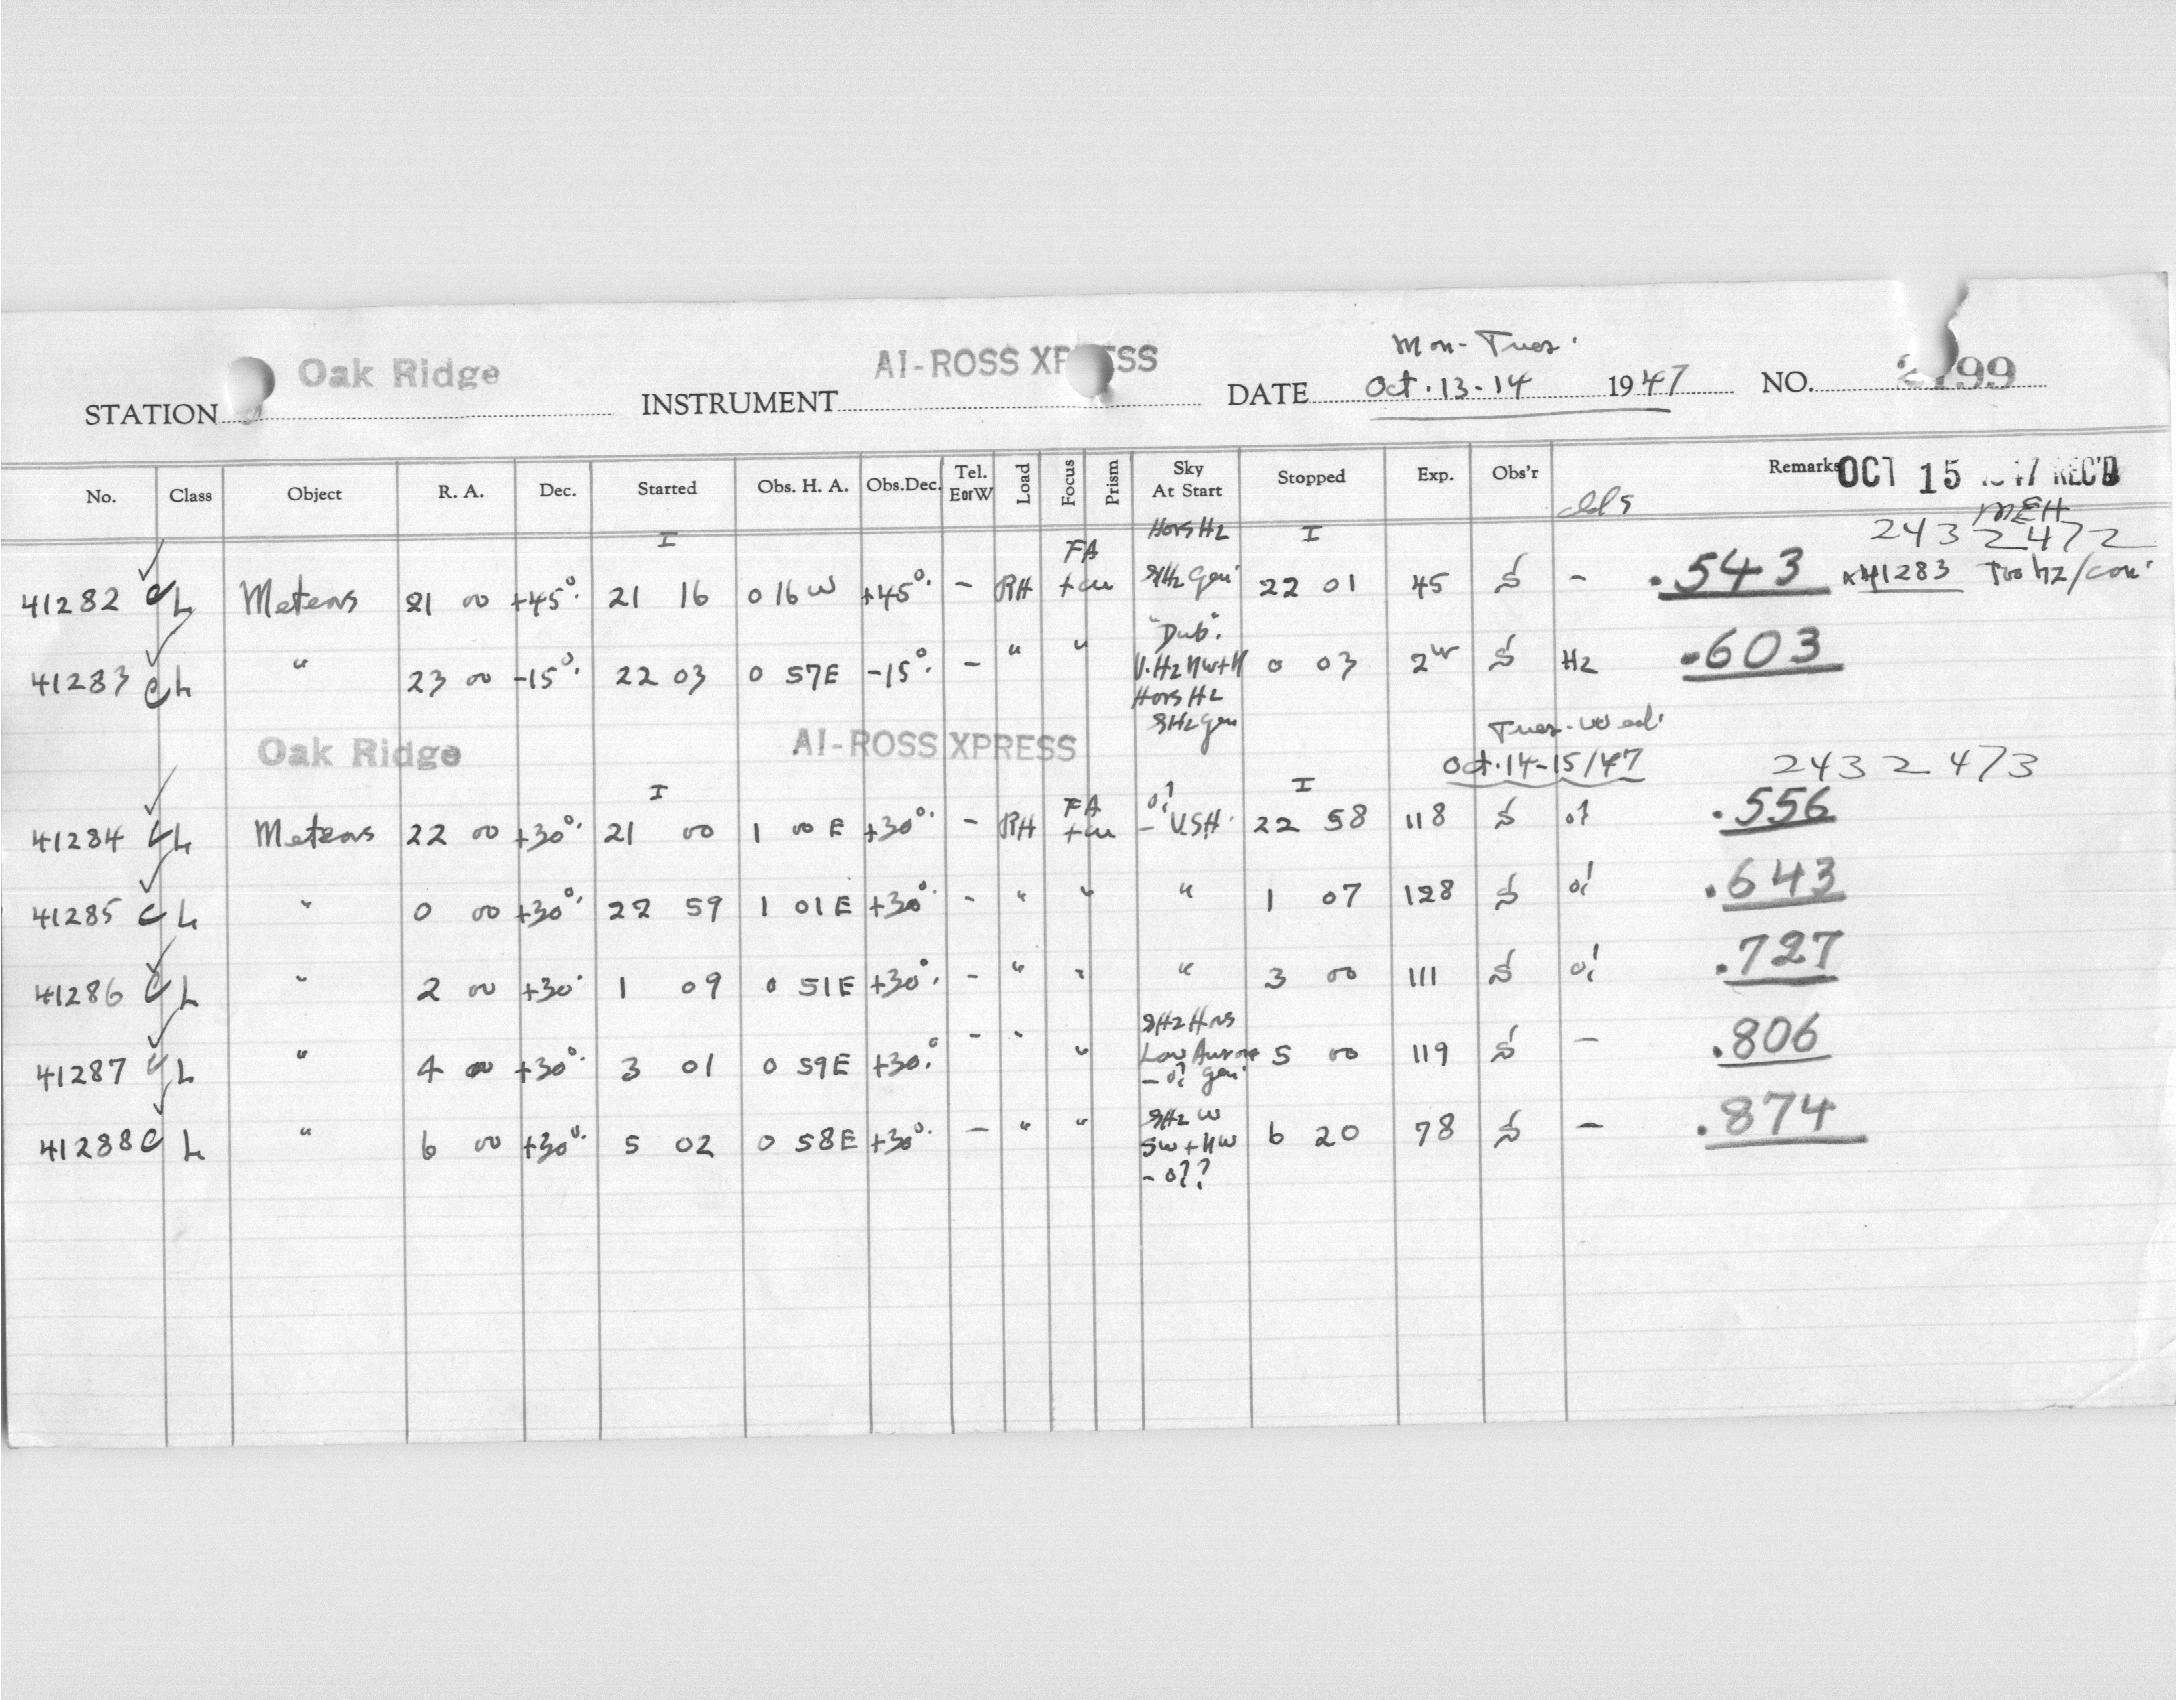 Mon - Tues.
STATION Oak Ridge INSTRUMENT AI-ROSS XPRESS DATE Oct. 13-14 1947 NO. 2199
No. Class Object R. A. Dec. Started Obs. H. A. Obs.Dec. Tel. EorW Load Focus Prism Sky At Start Stopped Exp. Obs'r Remarks OCT 15 1947 REC'D
MEH
I Hors Hz I 2432472
41282 C L Meteors 21 00 +45°. 21 16 0 16 W +45°. - RH FA + SHz Gen. 22 01 45 - .543 41283 Too hz/
41283 C L " 23 00 -15°. 22 03 0 57E -15°. - " " "Dub". V.Hz NW+N Hors Hz SHz gen 0 03 Hz .603
Oak Ridge AI-ROSS XPRESS Tues-Wed. Oct. 14-15/47 2432473
I I
41284 C L Meteors 22 00 +30°. 21 00 1 00 E +30°. - RH FA + 22 58 118 .556
41285 C L " 0 00 +30°. 22 59 1 01 E +30°. - " " " 1 07 128 .643
41286 C L " 2 00 +30°. 1 09 0 51 E +30°. - " " " 3 00 111 .727
41287 C L " 4 00 +30°. 3 01 0 59E +30°. - " " SHz Hrs Low Auror gen. 5 00 119 - .806
41288 C L " 6 00 +30°. 5 02 0 58E +30°. - " " SHz W SW + NW 6 20 78 - .874